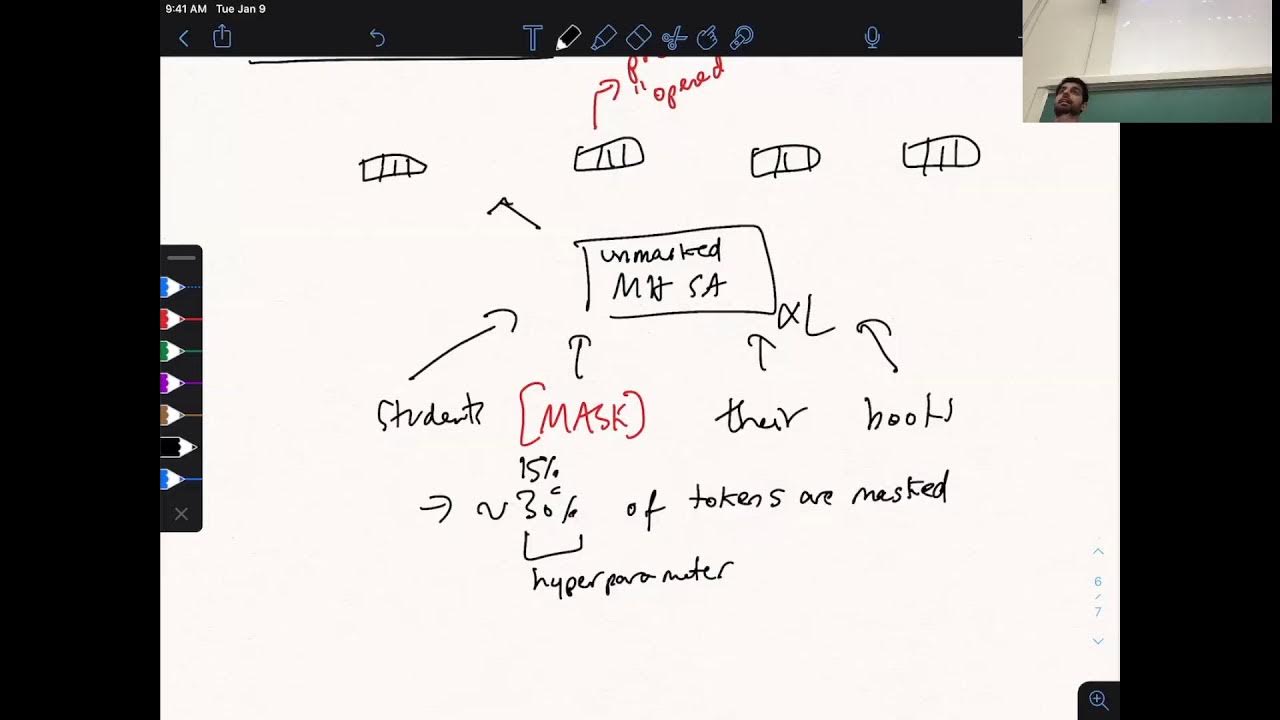 9:41 AM Tue Jan 9
T
opened
unmasked
MH SA
×L
students [MASK] their books
15%
→ ~30% of tokens are masked
hyperparameter
6
/
7